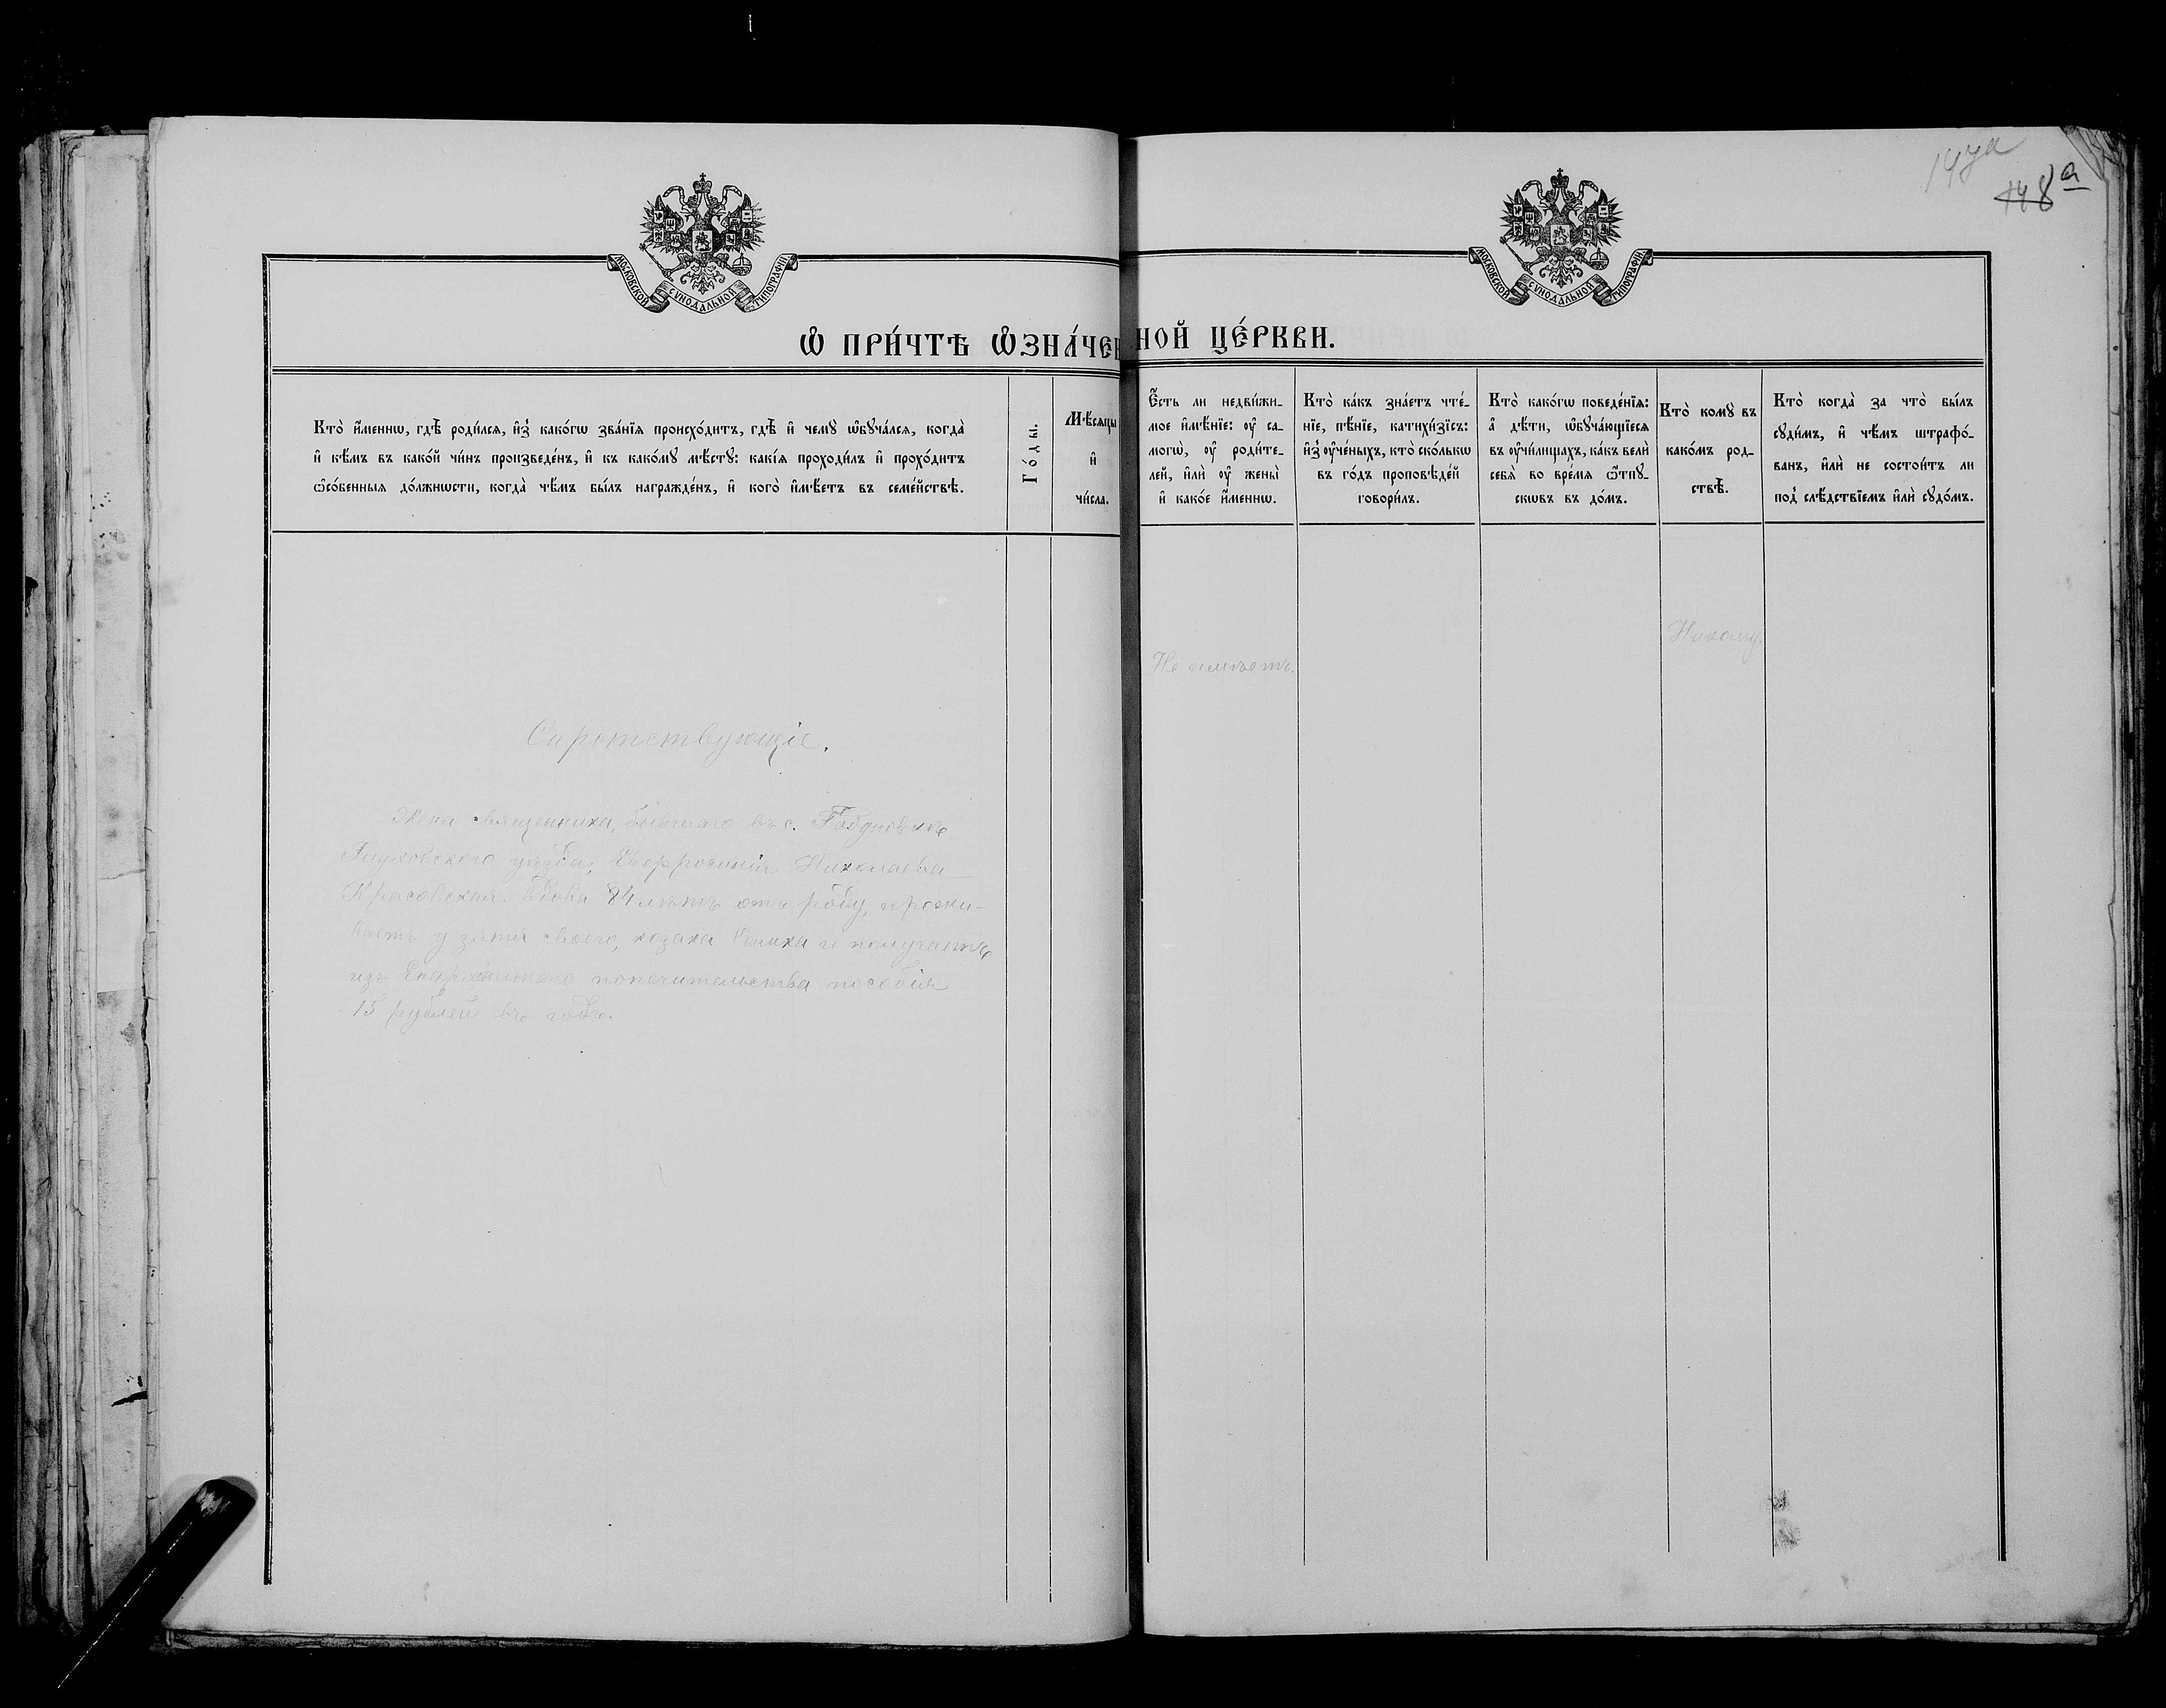 147а
148а
МОСКОВСКОЙ СѴНОДАЛЬНОЙ ТИПОГРАФІИ
МОСКОВСКОЙ СѴНОДАЛЬНОЙ ТИПОГРАФІИ
Ѽ ПРИ́ЧТѢ Ѡ҆ЗНА́ЧЕННОЙ ЦЕ́РКВИ.
Кто̀ и҆́меннѡ, гдѣ̀ роди́лся, и҆з̾ како́гѡ зва́нїѧ происхо́дитъ, гдѣ̀ и҆ чемꙋ̀ ѡ҆бꙋча́лся, когда̀
и҆ кѣ́мъ въ како́й чи́нъ произведе́нъ, и҆ къ како́мꙋ мѣ́стꙋ: какі́ѧ проходи́лъ и҆ прохо́дитъ
ѻ҆со́бенныѧ до́лжнѡсти, когда̀ чѣ́мъ бы́лъ награжде́нъ, и҆ кого̀ и҆мѣ́етъ въ семе́йствѣ.
Го́ды.
Мѣ́сѧцы
и҆
чи́сла.
Є҆́сть ли недви́жи-
мое и҆мѣ́нїе: оу҆ са-
могѡ̀, оу҆ роди́те-
лей, и҆лѝ оу҆ жены̀
и҆ како́е и҆́меннѡ.
Кто̀ ка́къ зна́етъ чте́-
нїе, пѣ́нїе, катихи́зїсъ:
и҆з̾ оу҆че́ныхъ, кто̀ ско́лькѡ
въ го́дъ проповѣ́дей
говори́лъ.
Кто̀ како́гѡ поведе́нїѧ:
а҆ дѣ́ти, ѡ҆бꙋча́ющїесѧ
въ оу҆чи́лищахъ, ка́къ велѝ
себѧ̀ во вре́мѧ ѿпꙋ-
скѡвъ въ до́мъ.
Кто̀ комꙋ̀ въ
како́мъ род-
ствѣ̀.
Кто̀ когда̀ за что̀ бы́лъ
сꙋди́мъ, и҆ чѣ́мъ штрафо́-
ванъ, и҆лѝ не состои́тъ ли
под̾ слѣ́дствїемъ и҆лѝ сꙋдо́мъ.
Никому.
Не имѣетъ.
Сиротствующіе.
Жена священника, бывшаго въ с.
Глуховского уѣзда, Евфросинія Николаева
Красовская вдова 84 лѣтъ отъ роду, прожи-
ваетъ у зятя своего, козака и получаетъ
изъ Епархіальнаго попечительства пособія
15 рублей въ годъ.